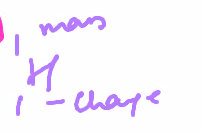 1 mass
H
1 - charge